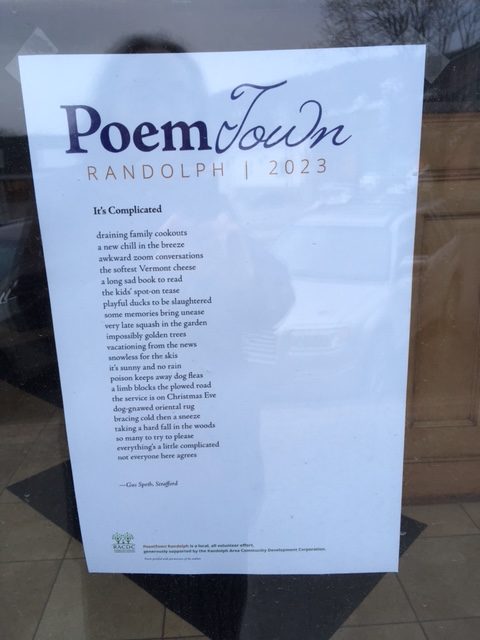 PoemTown
RANDOLPH | 2023
It's Complicated
draining family cookouts
a new chill in the breeze
awkward zoom conversations
the softest Vermont cheese
a long sad book to read
the kids' spot-on tease
playful ducks to be slaughtered
some memories bring unease
very late squash in the garden
impossibly golden trees
vacationing from the news
snowless for the skis
it's sunny and no rain
poison keeps away dog fleas
a limb blocks the plowed road
the service is on Christmas Eve
dog-gnawed oriental rug
bracing cold then a sneeze
taking a hard fall in the woods
so many to try to please
everything's a little complicated
not everyone here agrees
—Gus Speth, Strafford
RACDC
PoemTown Randolph is a local, all volunteer effort,
generously supported by the Randolph Area Community Development Corporation.